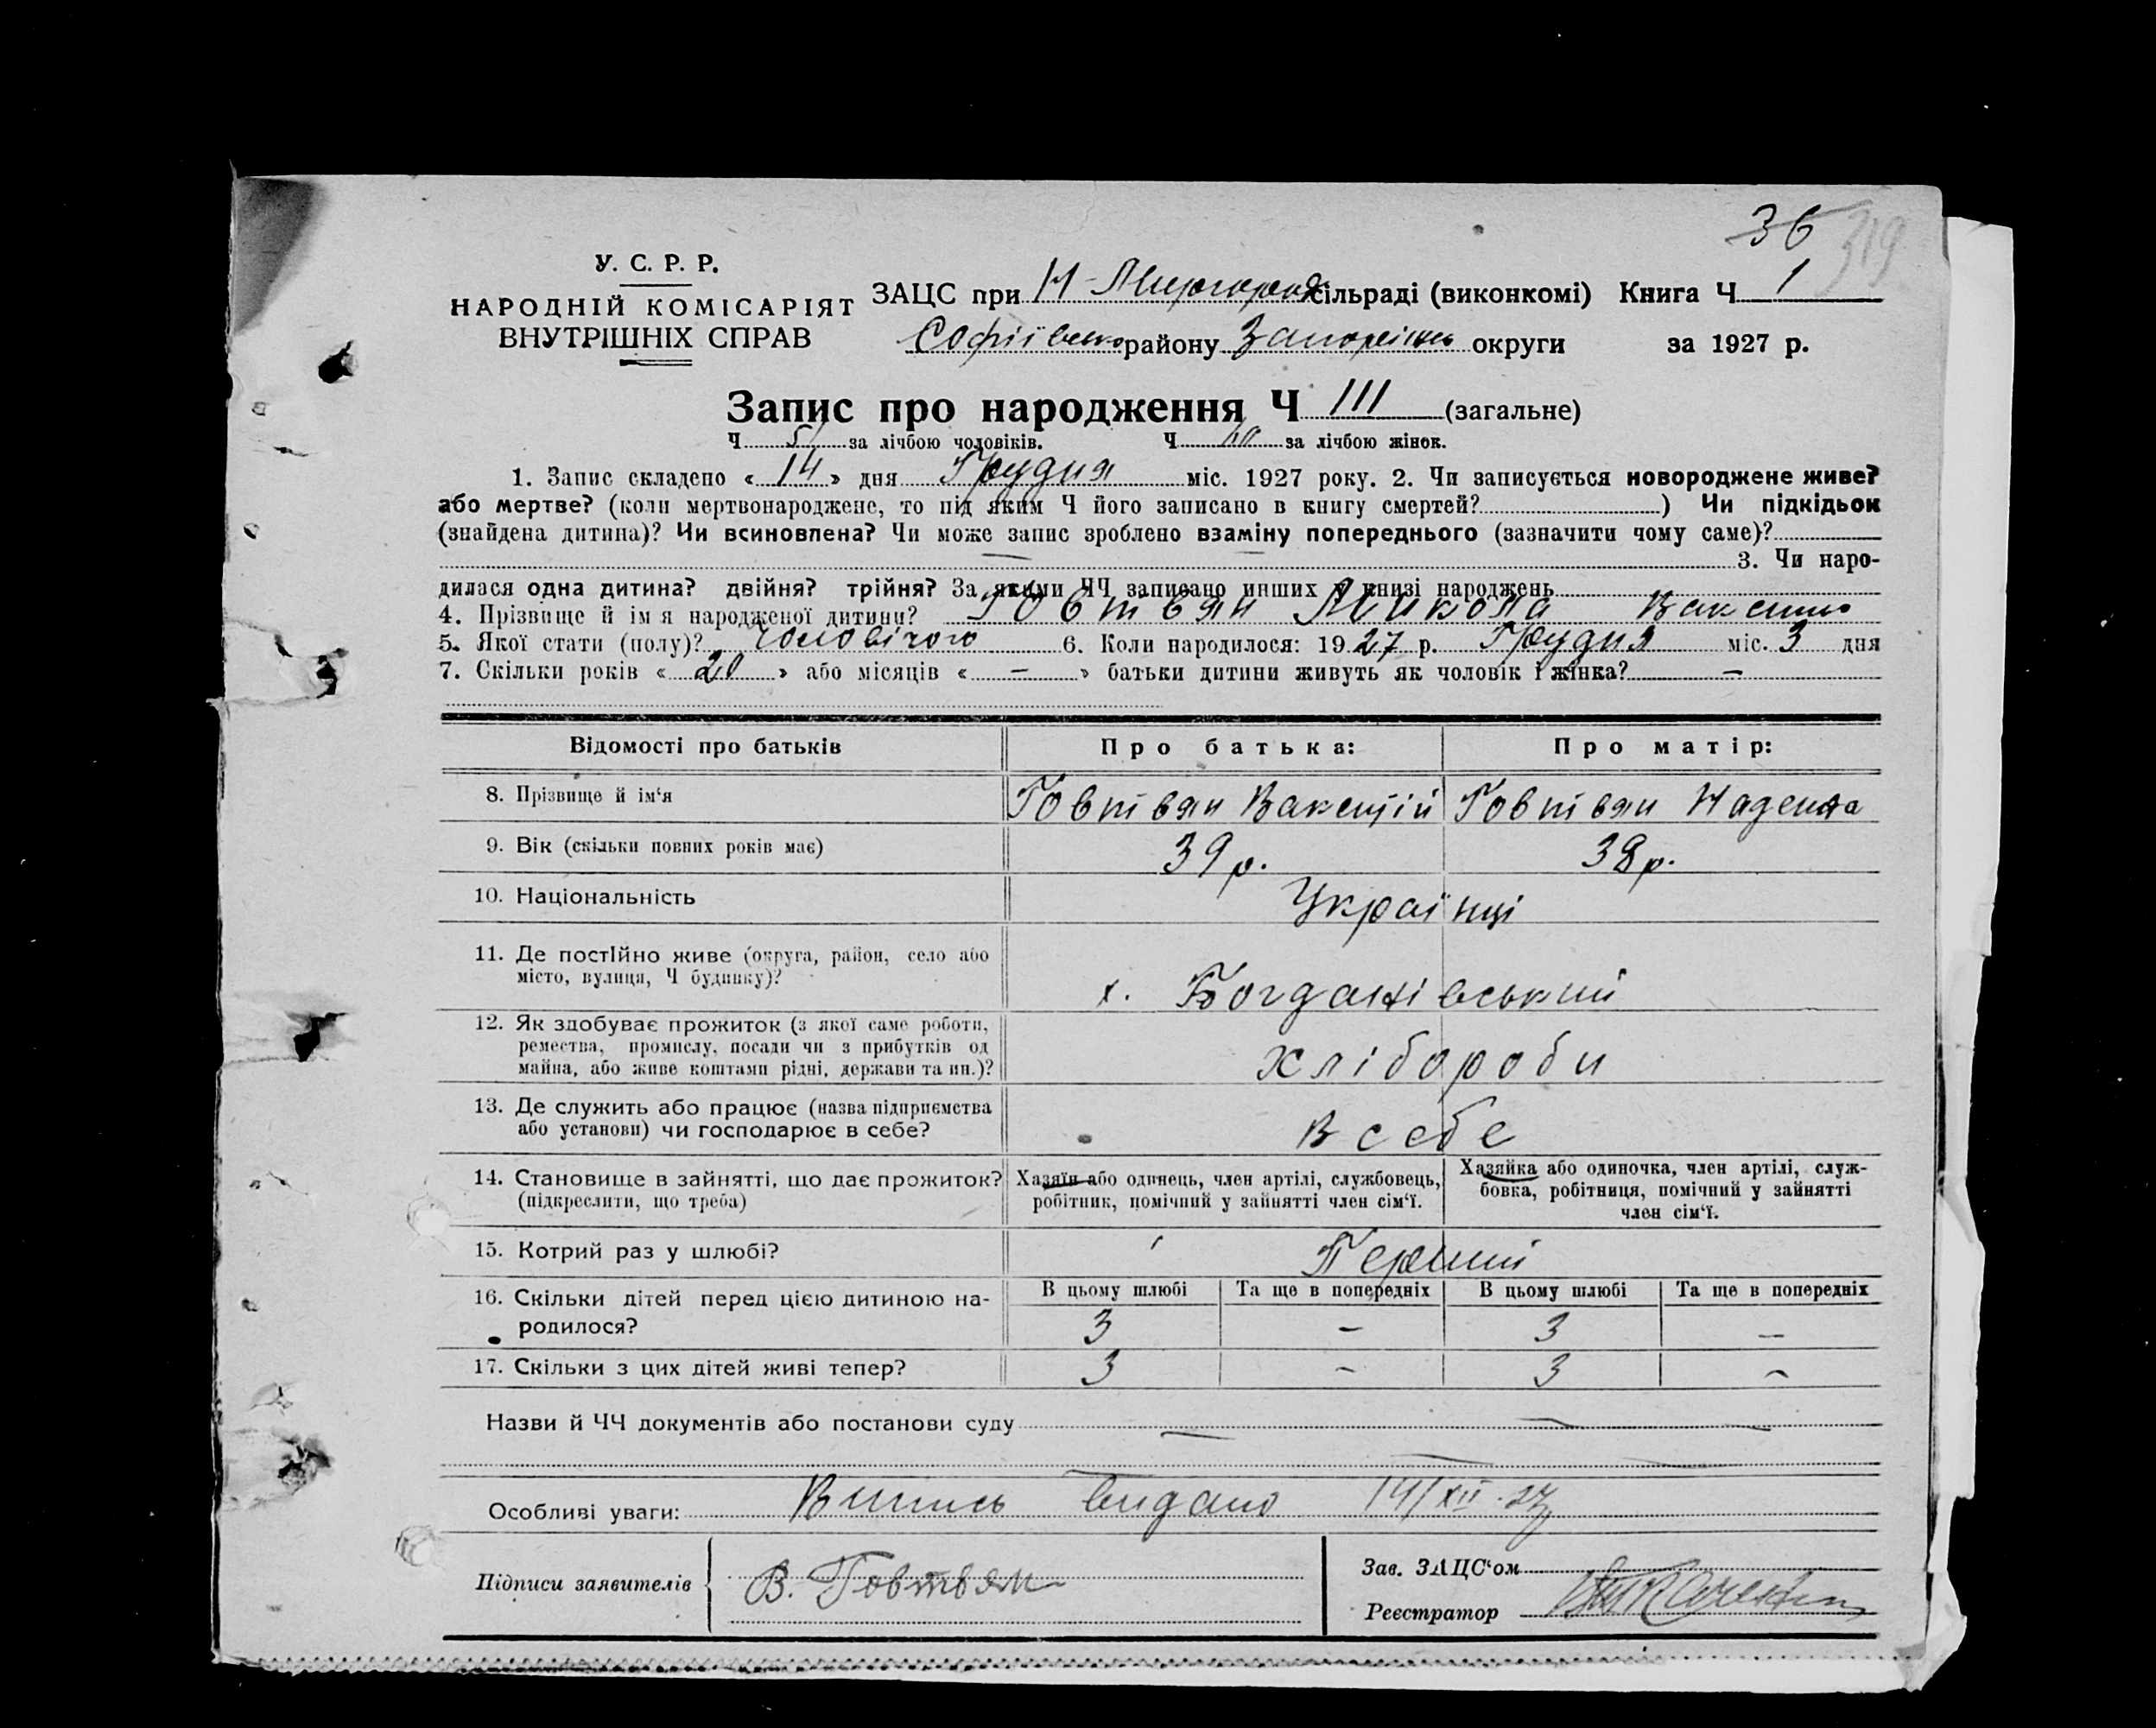 36 319
У. С. Р. Р.
НАРОДНІЙ КОМІСАРІЯТ
ВНУТРІШНІХ СПРАВ
ЗАЦС при Н-Миргород сільраді (виконкомі) Книга Ч 1
Софіївсько району Запоріжс округи за 1927 р.
Запис про народження Ч 111 (загальне)
Ч 51 за лічбою чоловіків. Ч 60 за лічбою жінок.
1. Запис складено « 14 » дня Грудня міс. 1927 року. 2. Чи записується новороджене живе?
або мертве? (коли мертвонароджене, то під яким Ч його записано в книгу смертей? ) Чи підкідьок
(знайдена дитина)? Чи всиновлена? Чи може запис зроблено взаміну попереднього (зазначити чому саме)?
3. Чи наро-
дилася одна дитина? двійня? трійня? За якими ЧЧ записано инших в книзі народжень
4. Прізвище й ім я народженої дитини? Говтвян Микола
5. Якої стати (полу)? Чоловічого 6. Коли народилося: 1927 р. Грудня міс. 3 дня
7. Скільки років « 20 » або місяців « – » батьки дитини живуть як чоловік і жінка? –
Відомості про батьків Про батька: Про матір:
8. Прізвище й ім‘я Говтвян Вакентій Говтвян Надежда
9. Вік (скільки повних років має) 39 р. 38 р.
10. Національність Українці
11. Де постійно живе (округа, район, село або
місто, вулиця, Ч будинку)? х. Богданівський
12. Як здобуває прожиток (з якої саме роботи,
ремества, промислу, посади чи з прибутків од
майна, або живе коштами рідні, держави та ин.)? Хлібороби
13. Де служить або працює (назва підприємства
або установи) чи господарює в себе? В себе
14. Становище в зайнятті, що дає прожиток?
(підкреслити, що треба)
Хазяїн або одинець, член артілі, службовець,
робітник, помічний у зайнятті член сім‘ї.
Хазяйка або одиночка, член артілі, служ-
бовка, робітниця, помічний у зайнятті
член сім‘ї.
15. Котрий раз у шлюбі? Перший
В цьому шлюбі Та ще в попередніх В цьому шлюбі Та ще в попередніх
16. Скільки дітей перед цією дитиною на-
родилося? 3 – 3 –
17. Скільки з цих дітей живі тепер? 3 – 3 –
Назви й ЧЧ документів або постанови суду
Особливі уваги: Випись видано 14/XII-27
Підписи заявителів В. Говтвян
Зав. ЗАЦС‘ом
Реєстратор